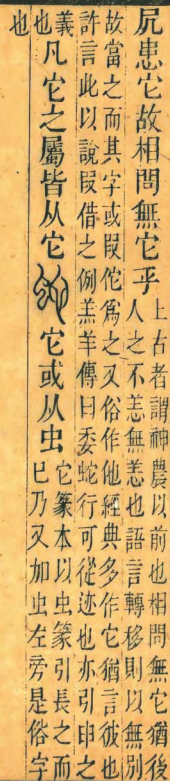 凥患它故相問無它乎
上古者謂神農以前也相問無它猶後
人之不恙無恙也語言轉移則以無別
故當之而其字或叚佗爲之又俗作他經典多作它猶言彼也
許言此以說叚借之例羔羊傳曰委蛇行可從迹也亦引申之
義
也
凡它之屬皆从它
它或从虫
它篆本以虫篆引長之而
巳乃又加虫左旁是俗字
也